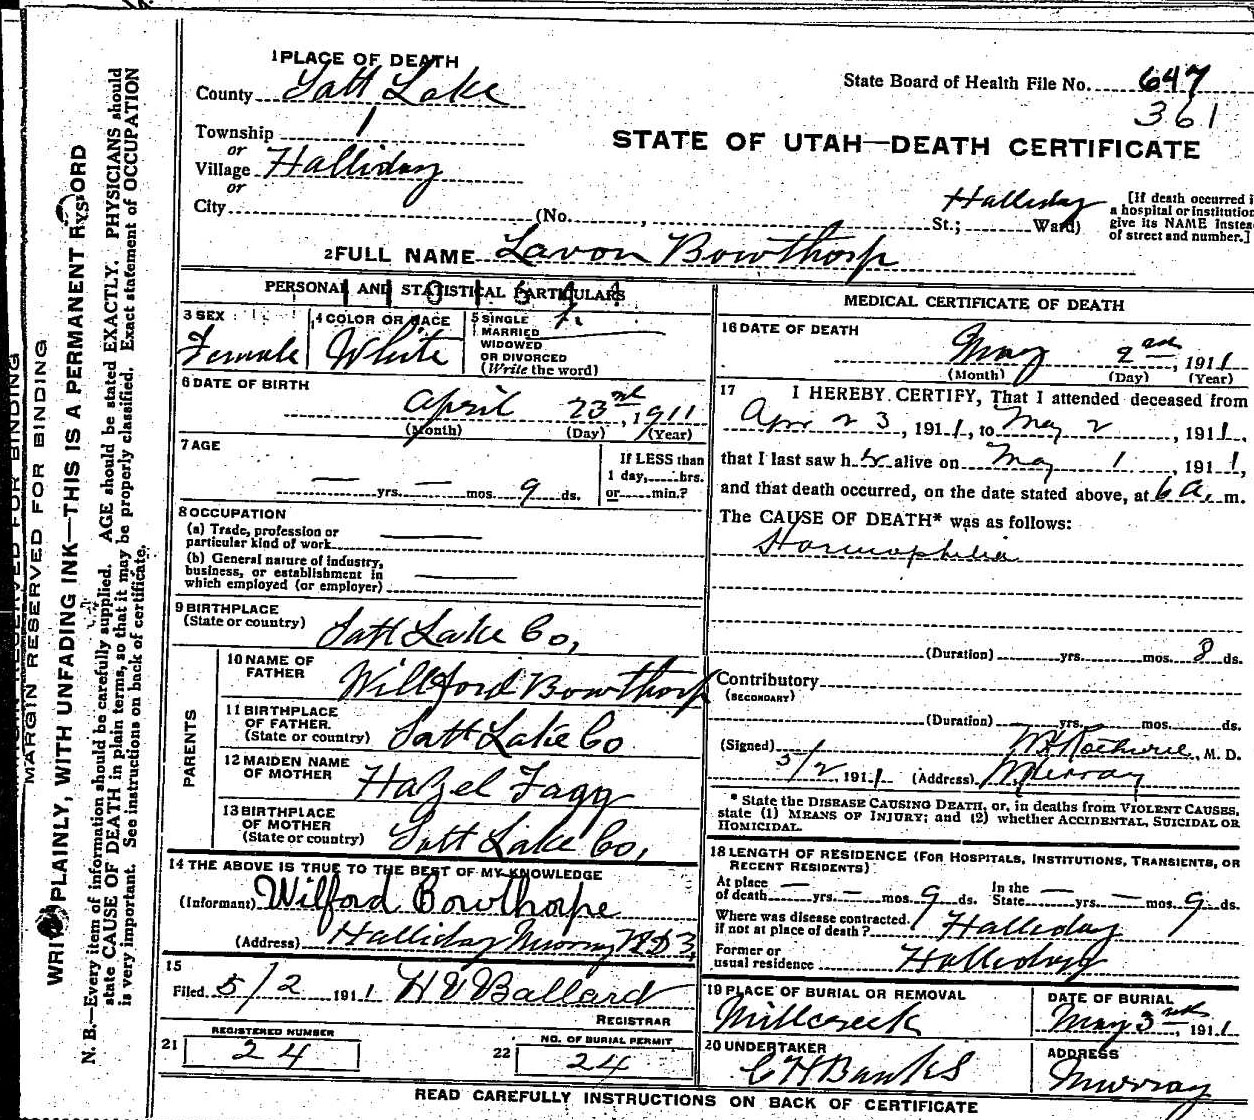 1 PLACE OF DEATH
County Salt Lake
State Board of Health File No. 647
361
Township 1
or
Village Halliday
or
City (No. , St.; Ward)
Halliday
STATE OF UTAH—DEATH CERTIFICATE
[If death occurred i
a hospital or institution
give its NAME instea
of street and number.]
2 FULL NAME Lavon Bowthorp
PERSONAL AND STATISTICAL PARTICULARS
3 SEX
Female
4 COLOR OR RACE
White
5 SINGLE
MARRIED
WIDOWED
OR DIVORCED
(Write the word)
6 DATE OF BIRTH
April 23rd, 1911
(Month) (Day) (Year)
7 AGE
— yrs. — mos. 9 ds.
If LESS than
1 day, hrs.
or min.?
8 OCCUPATION
(a) Trade, profession or
particular kind of work
(b) General nature of industry,
business, or establishment in
which employed (or employer)
9 BIRTHPLACE
(State or country) Salt Lake Co,
PARENTS
10 NAME OF
FATHER Willford Bowthorp
11 BIRTHPLACE
OF FATHER
(State or country) Salt Lake Co
12 MAIDEN NAME
OF MOTHER Hazel Fagg
13 BIRTHPLACE
OF MOTHER
(State or country) Salt Lake Co,
14 THE ABOVE IS TRUE TO THE BEST OF MY KNOWLEDGE
(Informant) Wilford Bowthorpe
(Address) Halliday Murray RD 3,
15
Filed 5/2 1911 HV Ballard
REGISTRAR
21 REGISTERED NUMBER
24
22 NO. OF BURIAL PERMIT
24
MEDICAL CERTIFICATE OF DEATH
16 DATE OF DEATH
May 2nd, 1911
(Month) (Day) (Year)
17 I HEREBY CERTIFY, That I attended deceased from
Apr 23, 1911, to May 2, 1911,
that I last saw her alive on May 1, 1911,
and that death occurred, on the date stated above, at 6 a. m.
The CAUSE OF DEATH* was as follows:
Haemophilia
(Duration) yrs. mos. 8 ds.
Contributory
(SECONDARY)
(Duration) yrs. mos. ds.
(Signed) , M. D.
5/2, 1911 (Address) Murray
* State the DISEASE CAUSING DEATH, or, in deaths from VIOLENT CAUSES,
state (1) MEANS OF INJURY; and (2) whether ACCIDENTAL, SUICIDAL OR
HOMICIDAL.
18 LENGTH OF RESIDENCE (FOR HOSPITALS, INSTITUTIONS, TRANSIENTS, OR
RECENT RESIDENTS)
At place
of death — yrs. — mos. 9 ds.
In the
State — yrs. — mos. 9 ds.
Where was disease contracted,
if not at place of death? Halliday
Former or
usual residence Halliday
19 PLACE OF BURIAL OR REMOVAL
Millcreek
DATE OF BURIAL
May 3rd, 1911
20 UNDERTAKER
C H Banks
ADDRESS
Murray
READ CAREFULLY INSTRUCTIONS ON BACK OF CERTIFICATE
MARGIN RESERVED FOR BINDING
PLAINLY, WITH UNFADING INK—THIS IS A PERMANENT
N. B.—Every item of information should be carefully supplied. AGE should be stated EXACTLY. PHYSICIANS should
state CAUSE OF DEATH in plain terms, so that it may be properly classified. Exact statement of OCCUPATION
is very important. See instructions on back of certificate.